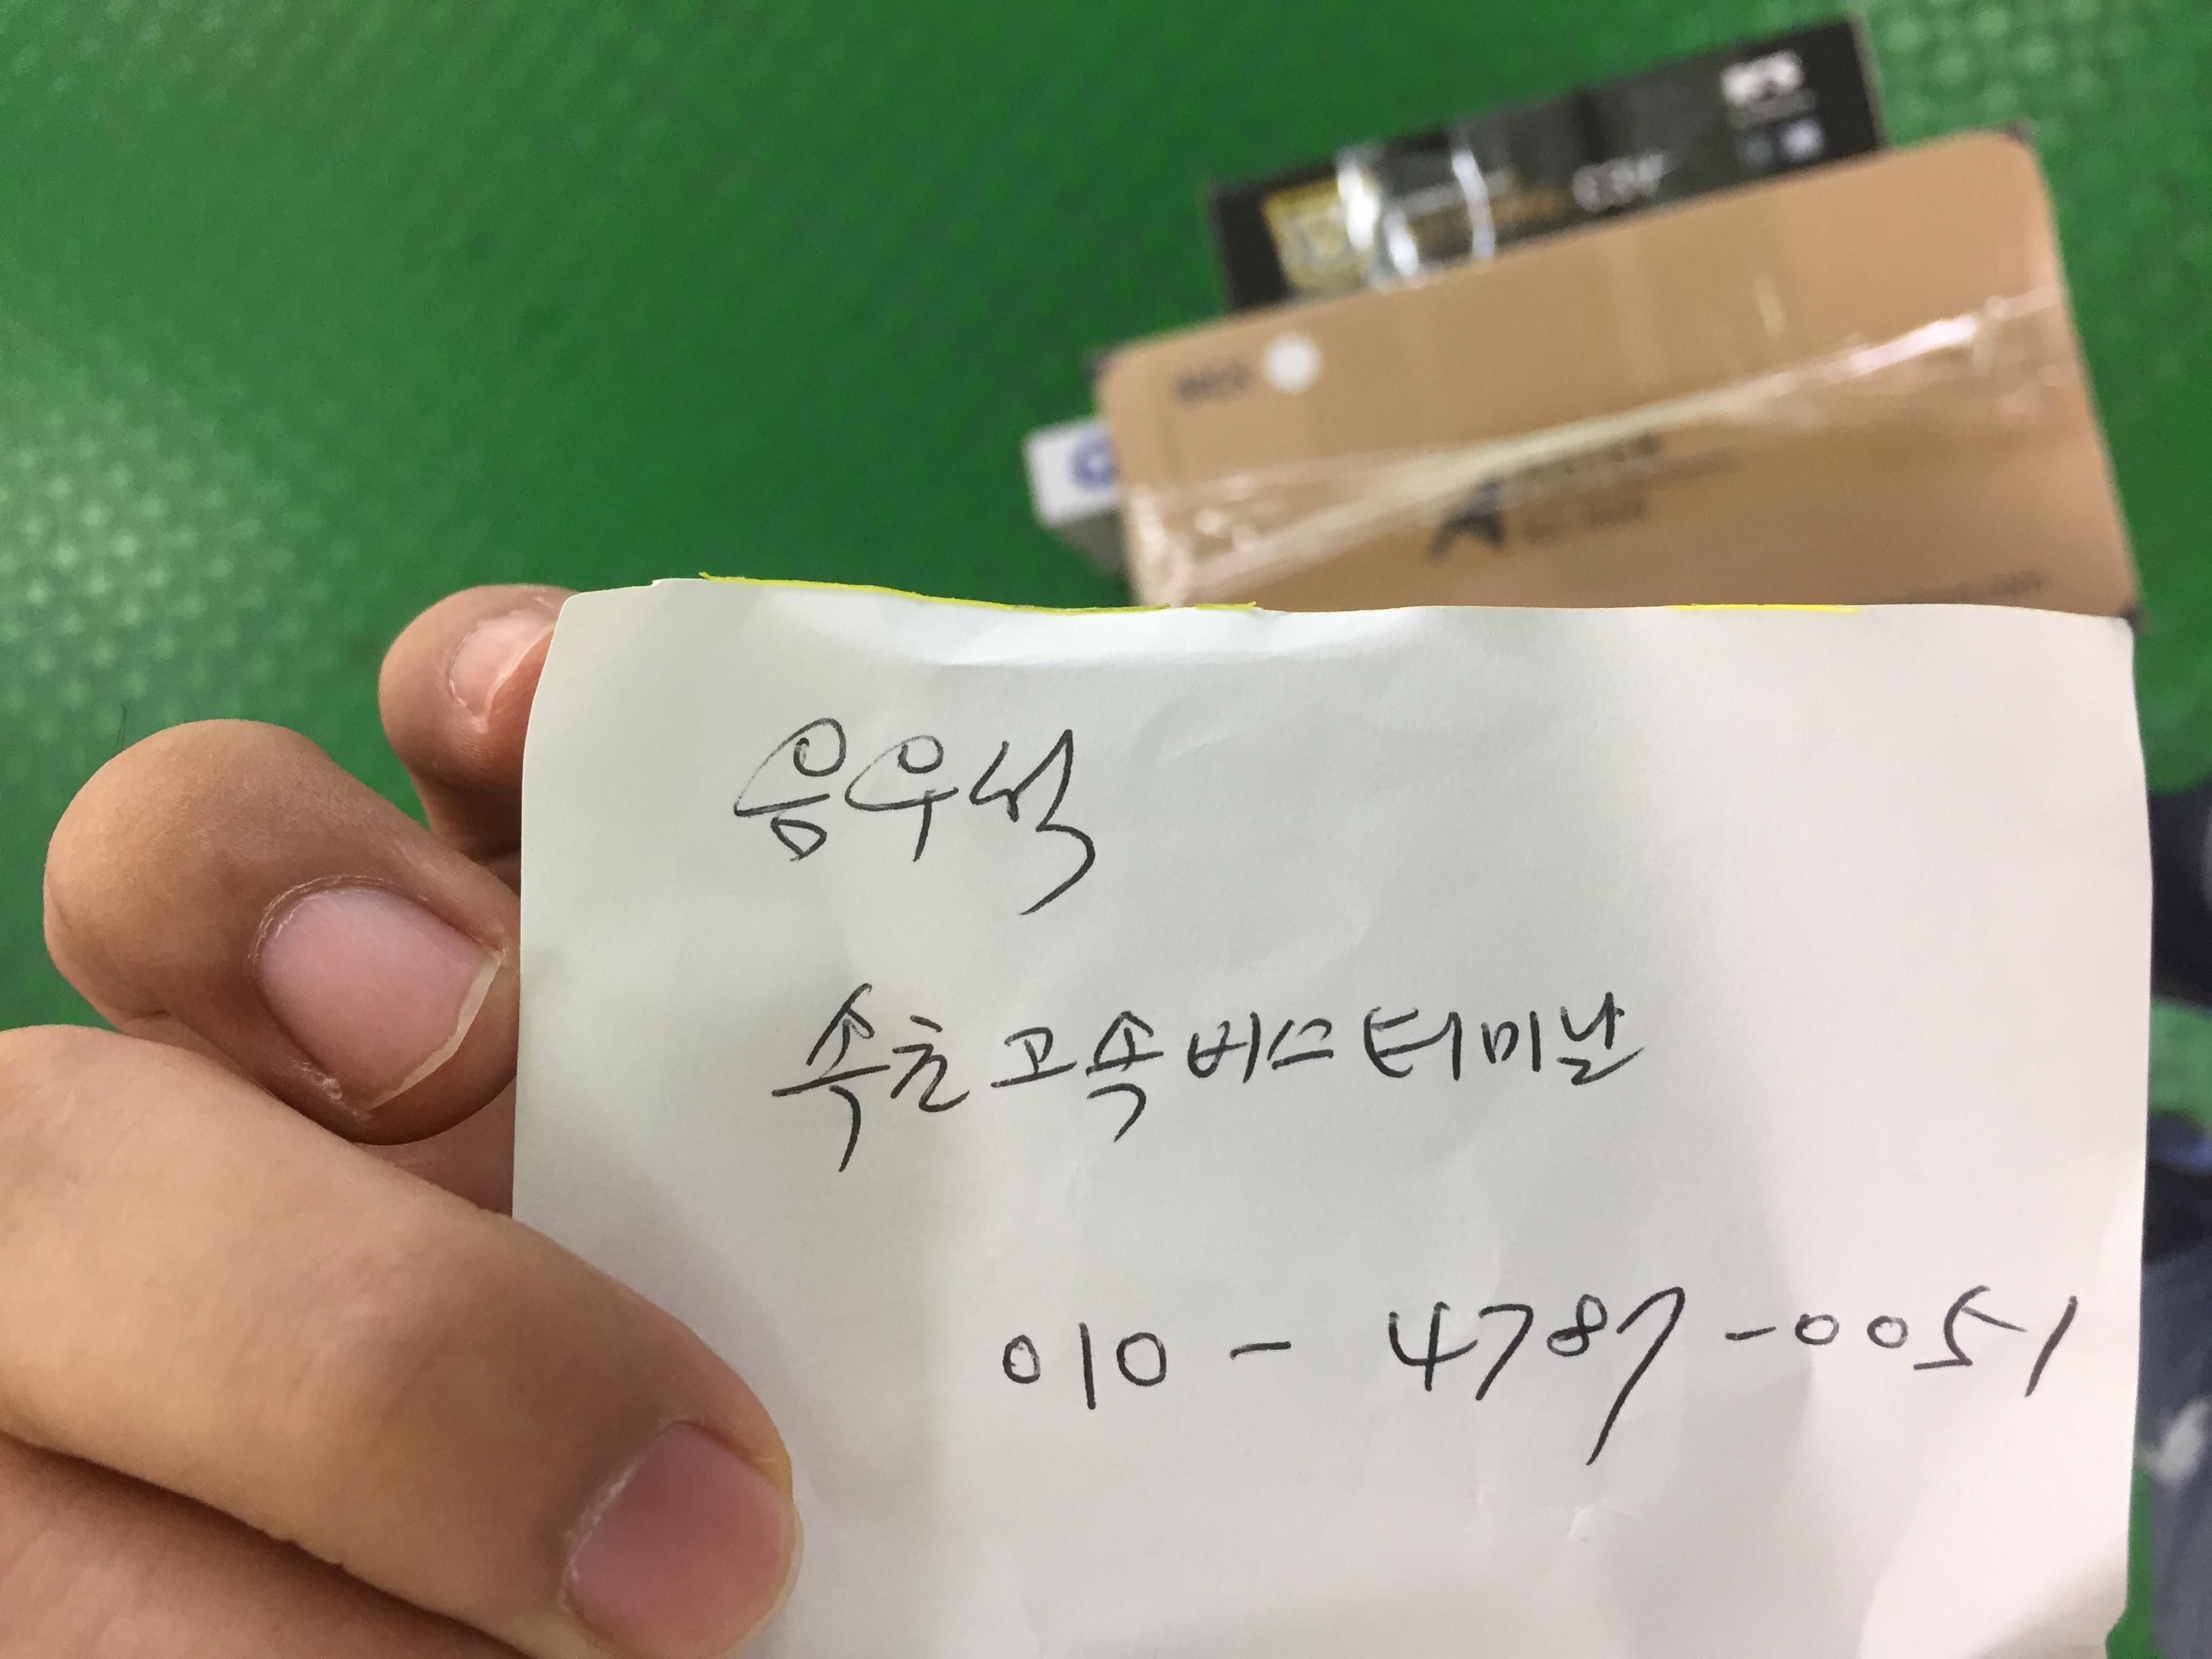 음우석
속초고속버스터미날
010-4787-0051